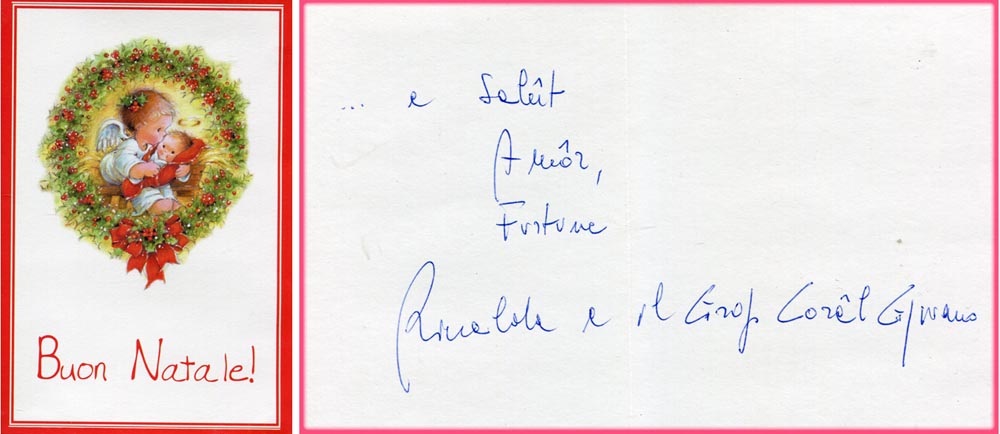 Buon Natale!
... e Salût
Amôr,
Fortune
Rinalda e il Grop Corâl Gjviano